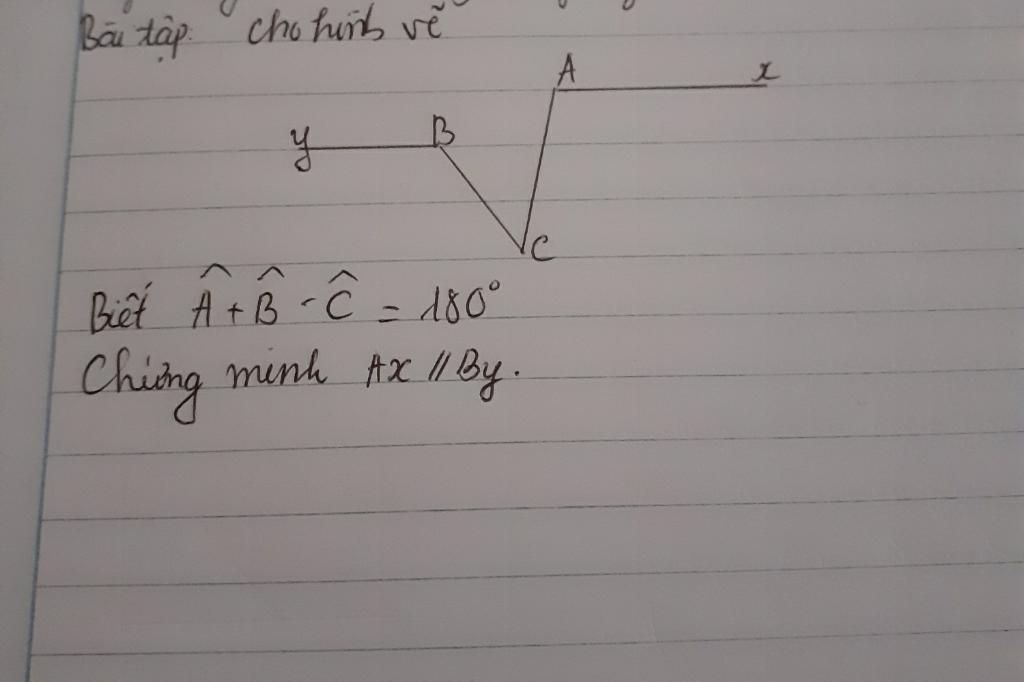 Bài tập: cho hình vẽ
A
x
y
B
C
Biết Â + B̂ - Ĉ = 180°
Chứng minh Ax // By.